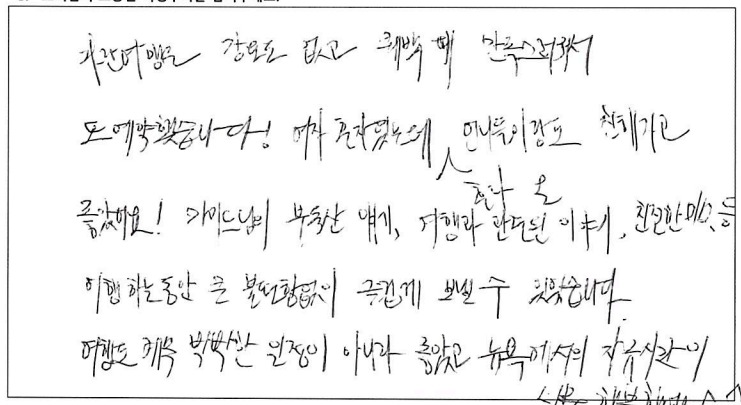 강요도 없고 퀘백 때 만족스러워서
또 예약했습니다! 여자 혼자였는데 혼자 온 언니들이랑도 친해지고
좋았어요! 가이드님이 부동산 얘기, 여행과 관련된 이야기, 친절한 미소 등
여행 하는동안 큰 불편함없이 즐겁게 보낼 수 있었습니다.
여행도 빡빡한 일정이 아니라 좋았고 뉴욕에서의 자유시간이